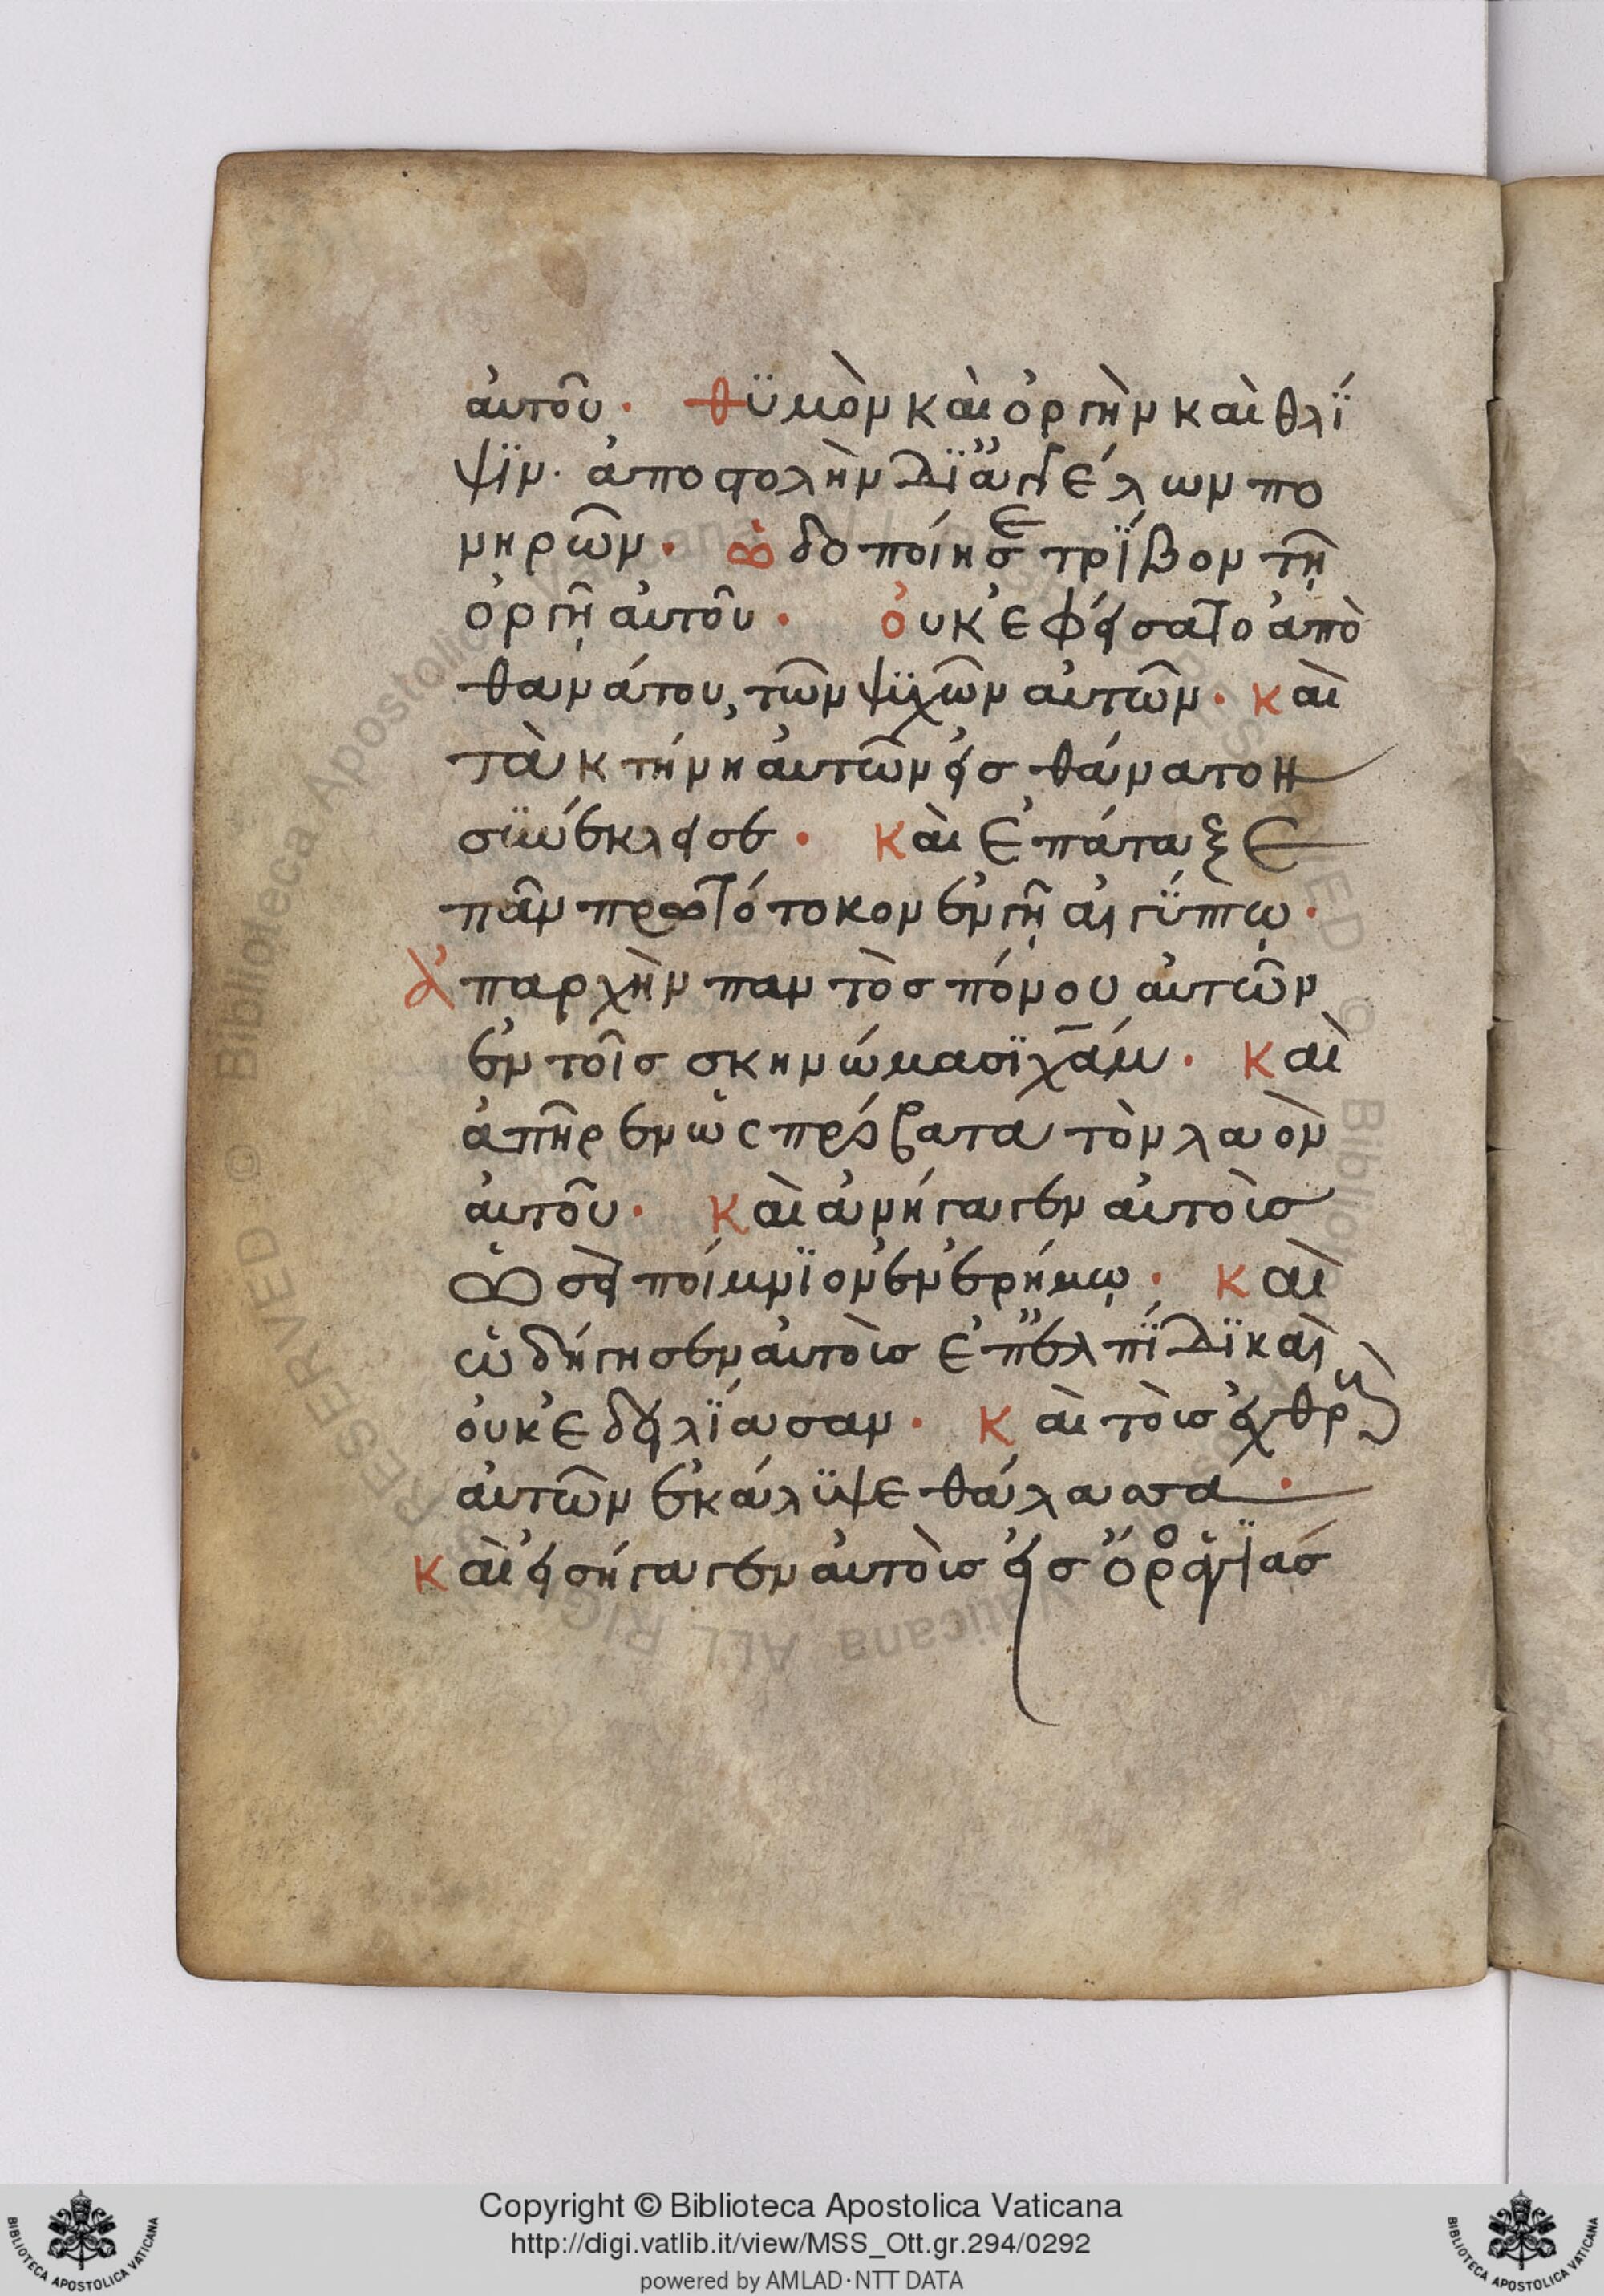 αὐτοῦ· θϋμὸν καὶ ὀργὴν καὶ θλΐ
ψϊν· ἀποστολὴν δϊ᾿ἀγγέλων πο
νηρῶν· ὡδοποίησε τρΐβον τῆ
ὀργῆ αὐτοῦ· οὐκ ἐφείσατο ἀπὸ
θανάτου, τῶν ψϋχῶν αὐτῶν· καὶ
τὰ κτήνη αὐτῶν εἰσ θάνατον
σϋνέκλεισε· καὶ ἐπάταξε
πᾶν πρωτότοκον ἐν γῆ αἰγΰπτω·
ἀπαρχὴν παντὸσ πόνου αὐτῶν
ἐν τοῖσ σκηνώμασϊ χάμ· καὶ
ἀπῆρεν ὡς πρόβατα τὸν λαὸν
αὐτοῦ· καὶ ἀνήγαγεν αὐτοὺσ
ὡσεὶ ποίμνϊον ἐν ἐρήμω· καὶ
ὡδήγησεν αὐτοὺσ ἐπ᾿ ἐλπΐδϊ καὶ
οὐκ ἐδειλΐασαν· καὶ τοὺσ ἐχθροὺσ
αὐτῶν ἐκάλϋψε θάλασσα·
καὶ εἰσήγαγεν αὐτοὺσ εἰσ ὄροσ ἁγϊάσ
Copyright © Biblioteca Apostolica Vaticana
http://digi.vatlib.it/view/MSS_Ott.gr.294/0292
powered by AMLAD·NTT DATA
BIBLIOTECA APOSTOLICA VATICANA
BIBLIOTECA APOSTOLICA VATICANA